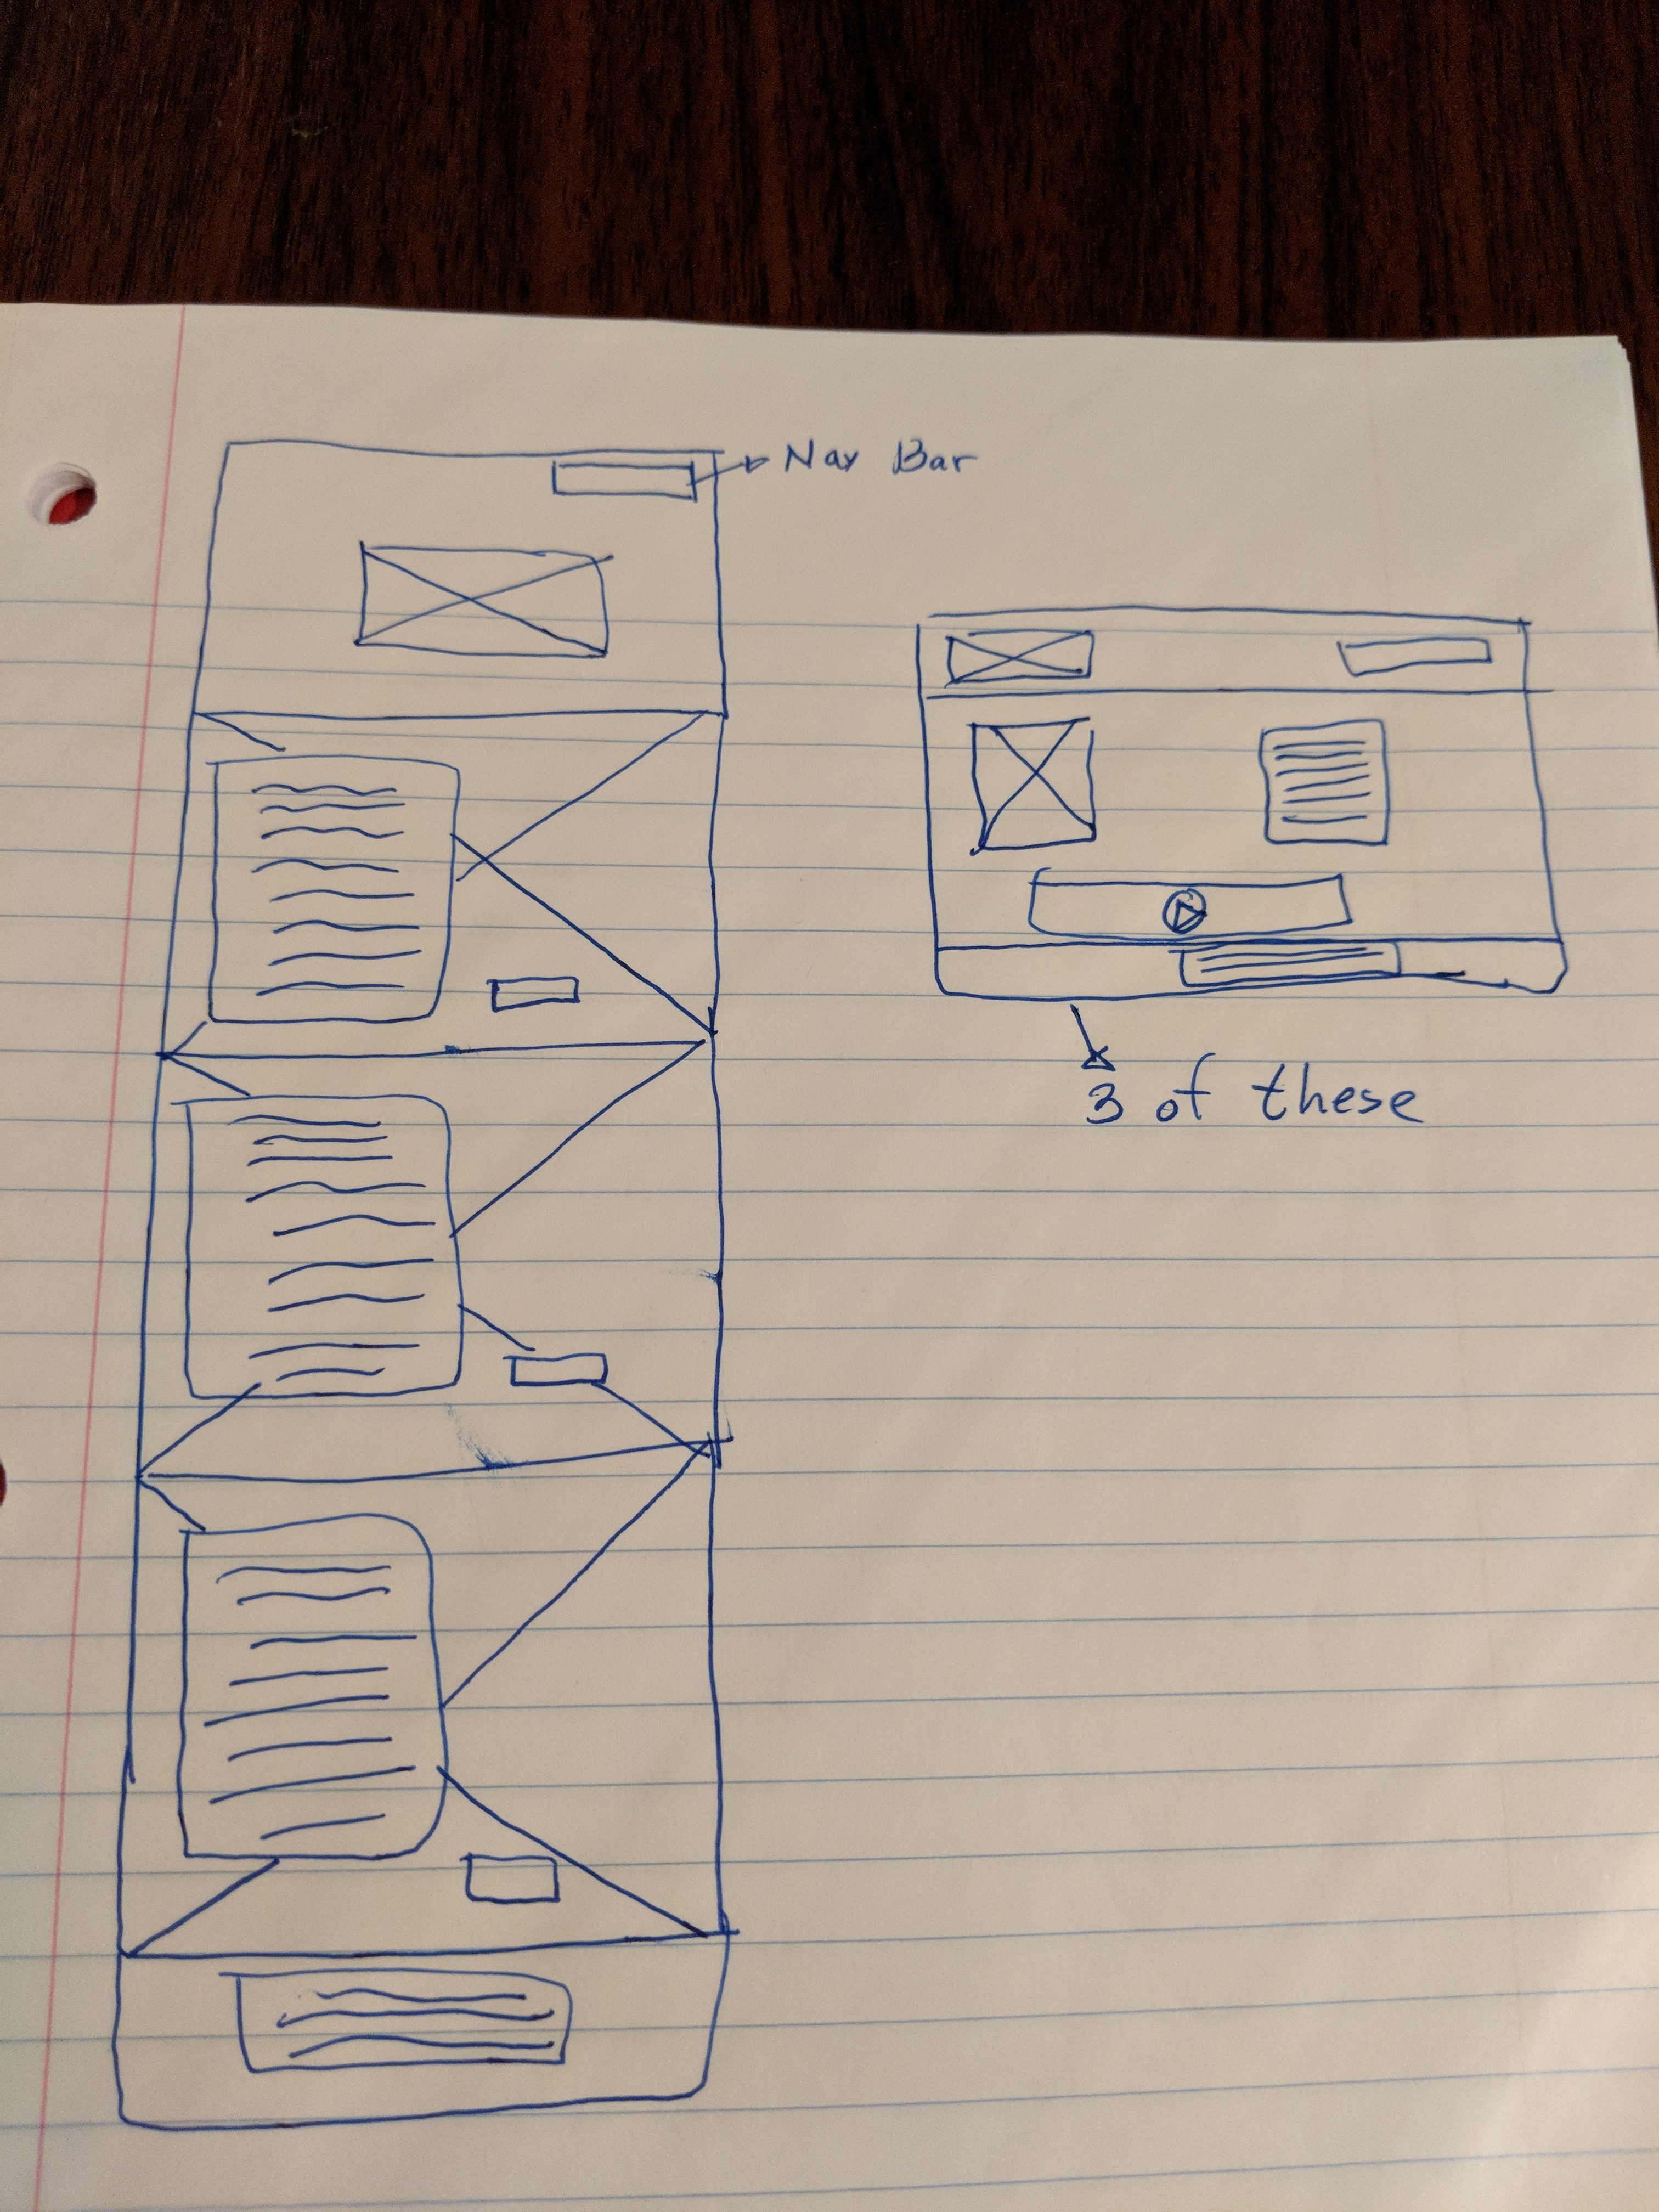 Nav Bar
3 of these